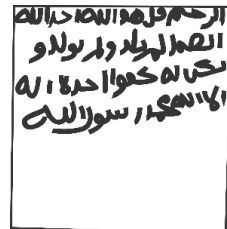 الرحيم قل هو الله احد الله
الصمد لم يلد ولم يولد و
يكن له كفوا احد لا اله
الا الله محمد رسول الله